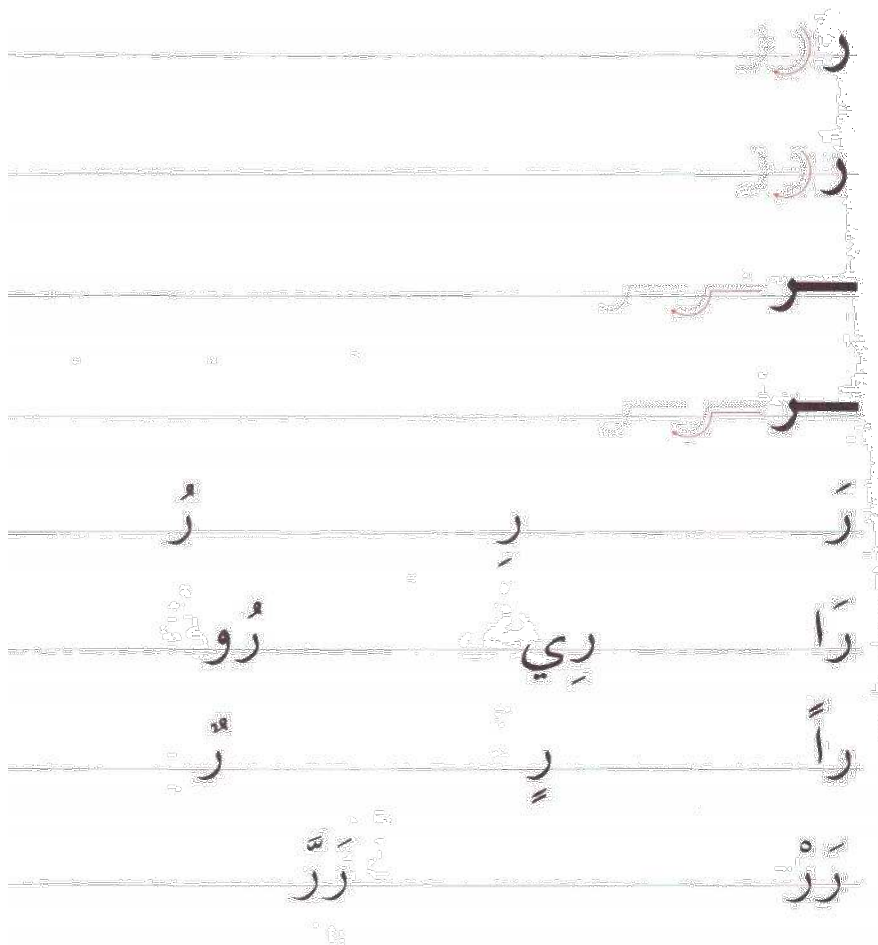 ر ر ر
ر ر ر
ـر ـر ـر
ـر ـر ـر
رَ رِ رُ
رَا رِي رُو
راً رٍ رٌ
رَرْ رَرَّ